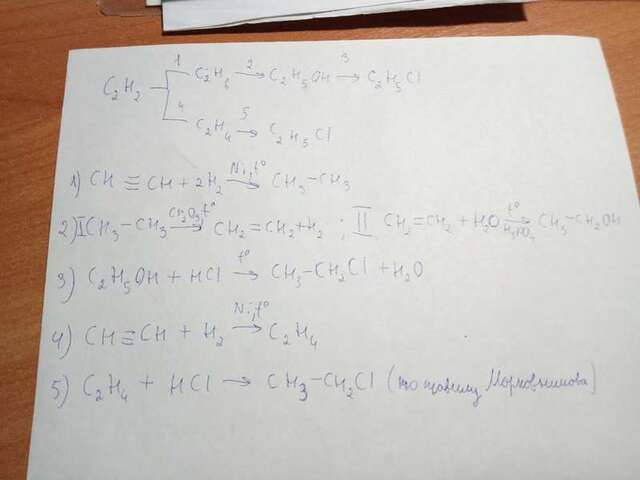 C₂H₂ 1 C₂H₆ 2→ C₂H₅OH 3→ C₂H₅Cl
4 C₂H₄ 5→ C₂H₅Cl
1) CH≡CH + 2H₂ Ni, t°→ CH₃–CH₃
2) I CH₃–CH₃ Cr₂O₃, t°→ CH₂=CH₂+H₂ ; II CH₂=CH₂ + H₂O t°→ H₃PO₄ CH₃–CH₂OH
3) C₂H₅OH + HCl t°→ CH₃–CH₂Cl + H₂O
4) CH≡CH + H₂ Ni, t°→ C₂H₄
5) C₂H₄ + HCl → CH₃–CH₂Cl (по правилу Морковникова)